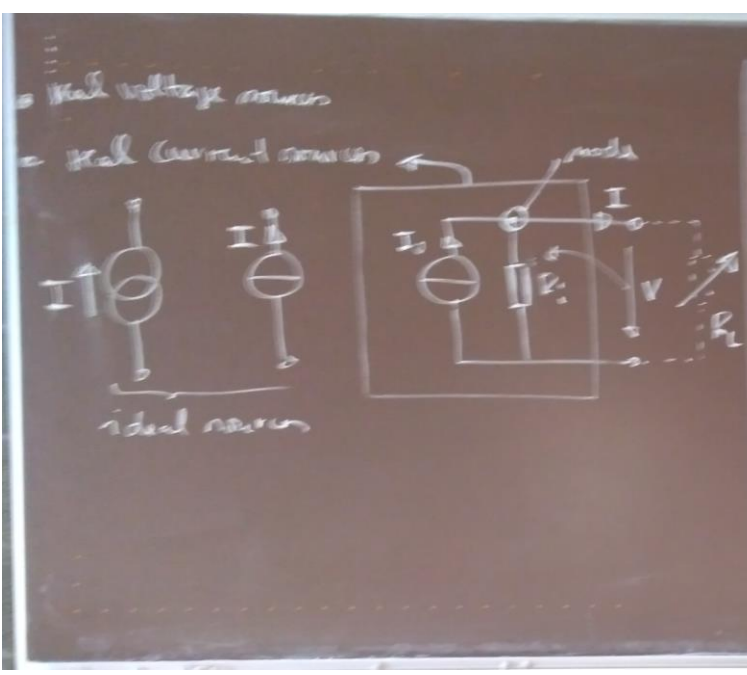 real voltage sources
real current sources
node
I
I
I
I₀
Rᵢ
V
R_L
ideal sources